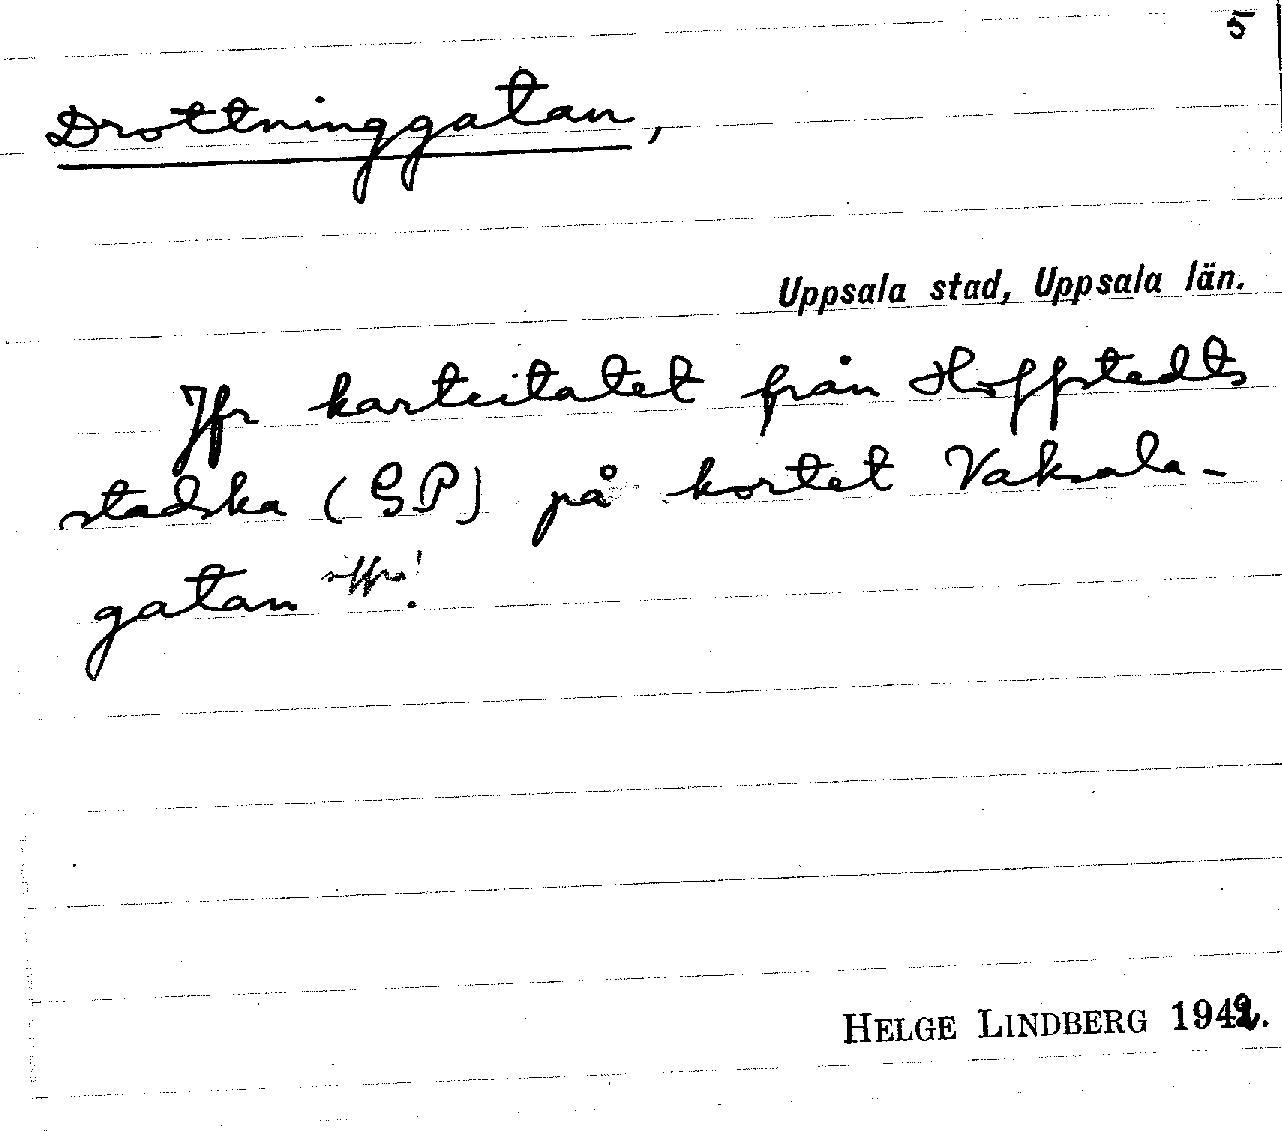 5
Drottninggatan,
Uppsala stad, Uppsala län.
Jfr kartcitatet från Hoffstedts
stadska (GP) på kortet Vaksala-
gatan
HELGE LINDBERG 1942.